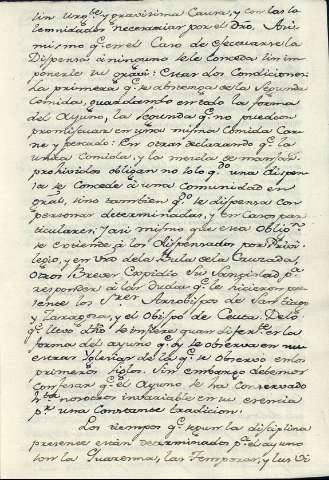 sin urg.te y gravisima Causa, y con las so
lemnidades necesarias por el Dño. Asi-
mismo q.e en el Caso de efectuarse la
Dispensa à ninguno se le Conceda sin im
ponerle us gravi: Estas dos Condiciones:
La primera q.e se abstenga de la Segunda
Comida, guardando en todo la forma
del Ayuno, la Segunda q.e no puedan
promiscuar en una misma Comida Car
ne y pescado: En otras declarando q.e la
unica Comida, y la mezcla de manjares
prohividos obligan no solo q.do una dispen
sa se Concede à una Comunidad en
gral, sino tambien q.do se dispensa con
personas determinadas, y en Casos par
ticulares, y asi mismo que esta oblig.n
se extiende à los dispensados por Privi
legio, y en uso de la Bula de la Cruzada,
otros Breves expidio Su Santidad p.a
responder à las Dudas q.e le hicieron pre
sente los S.res Arzobispo de Santiago,
y Zaragoza, y el Obispo de Ceuta. De lo
q.e llevo dho se infiere quan difer.te es la
forma del ayuno q.e oy se observa en nu
estras Yglesias de la q.e se observo en los
primeros siglos. Sin embargo debemos
confesar q.e el Ayuno se ha conservado
h.ta nosotros invariable en su esencia
p.r una Constante tradicion.
Los tiempos q.e segun la disciplina
presente estàn determinados p.a el ayuno
son la Quaresma, las Temporas, y las Vi